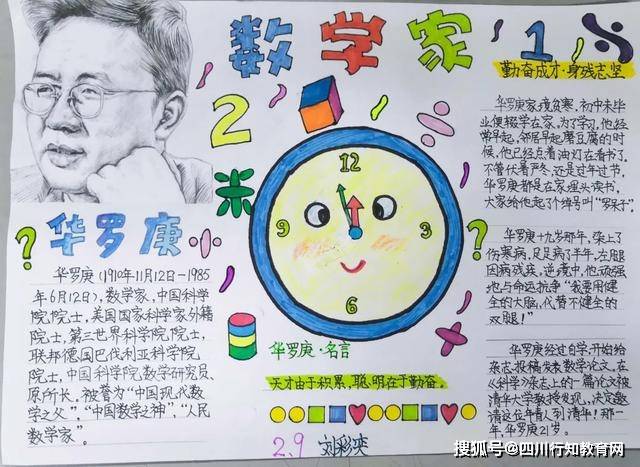 数学家
1
2
勤奋成才·身残志坚
华罗庚
华罗庚(1910年11月12日-1985
年6月12日),数学家,中国科学
院院士,美国国家科学家外籍
院士,第三世界科学院院士,
联邦德国巴伐利亚科学院
院士,中国科学院数学研究员、
原所长,被誉为“中国现代数
学之父”,“中国数学之神”,“人民
数学家”。
12
3
6
9
华罗庚·名言
天才由于积累,聪明在于勤奋。
2.9
华罗庚家境贫寒,初中未毕
业便辍学在家。为了学习,他经
常早起,邻居早起磨豆腐的时
候,他已经点着油灯在看书了。
不管伏暑严冬,还是过年过节,
华罗庚都是在家埋头读书,
大家给他起了个绰号叫“罗呆子”。
华罗庚十九岁那年,染上了
伤寒病,足足病了半年,左腿
因病残疾,逆境中,他顽强
地与命运抗争“我要用健
全的大脑,代替不健全的
双腿!”
华罗庚经过自学,开始给
杂志投稿发表数学论文。在
《科学》杂志上的一篇论文被
清华大学教授发现,决定邀
请这位年青人到清华!那一
年,华罗庚21岁。
搜狐号@四川行知教育网